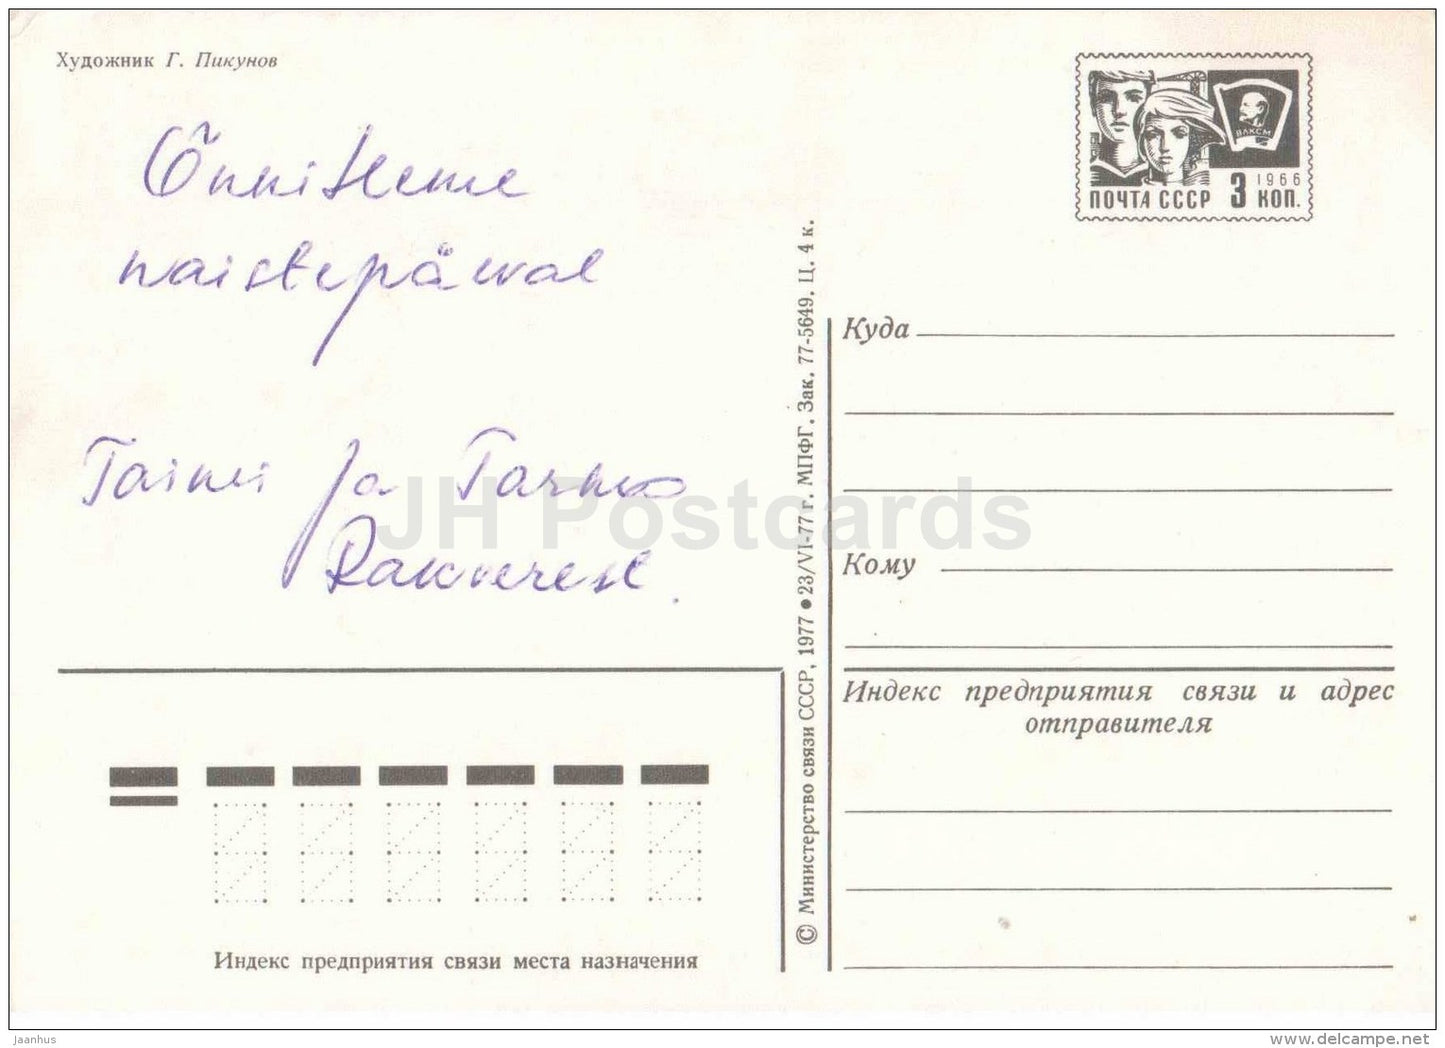 Художник Г. Пикунов
Õnnitleme
naistepäeval
Taimi ja Tarmo
Rakverest.
1966
ПОЧТА СССР 3 КОП.
ВЛКСМ
Куда
Кому
Индекс предприятия связи и адрес
отправителя
© Министерство связи СССР, 1977 ● 23/VI-77 г. МПФГ. Зак. 77-5649. Ц. 4 к.
Индекс предприятия связи места назначения
JH Postcards
jaanhus
www.delcampe.net